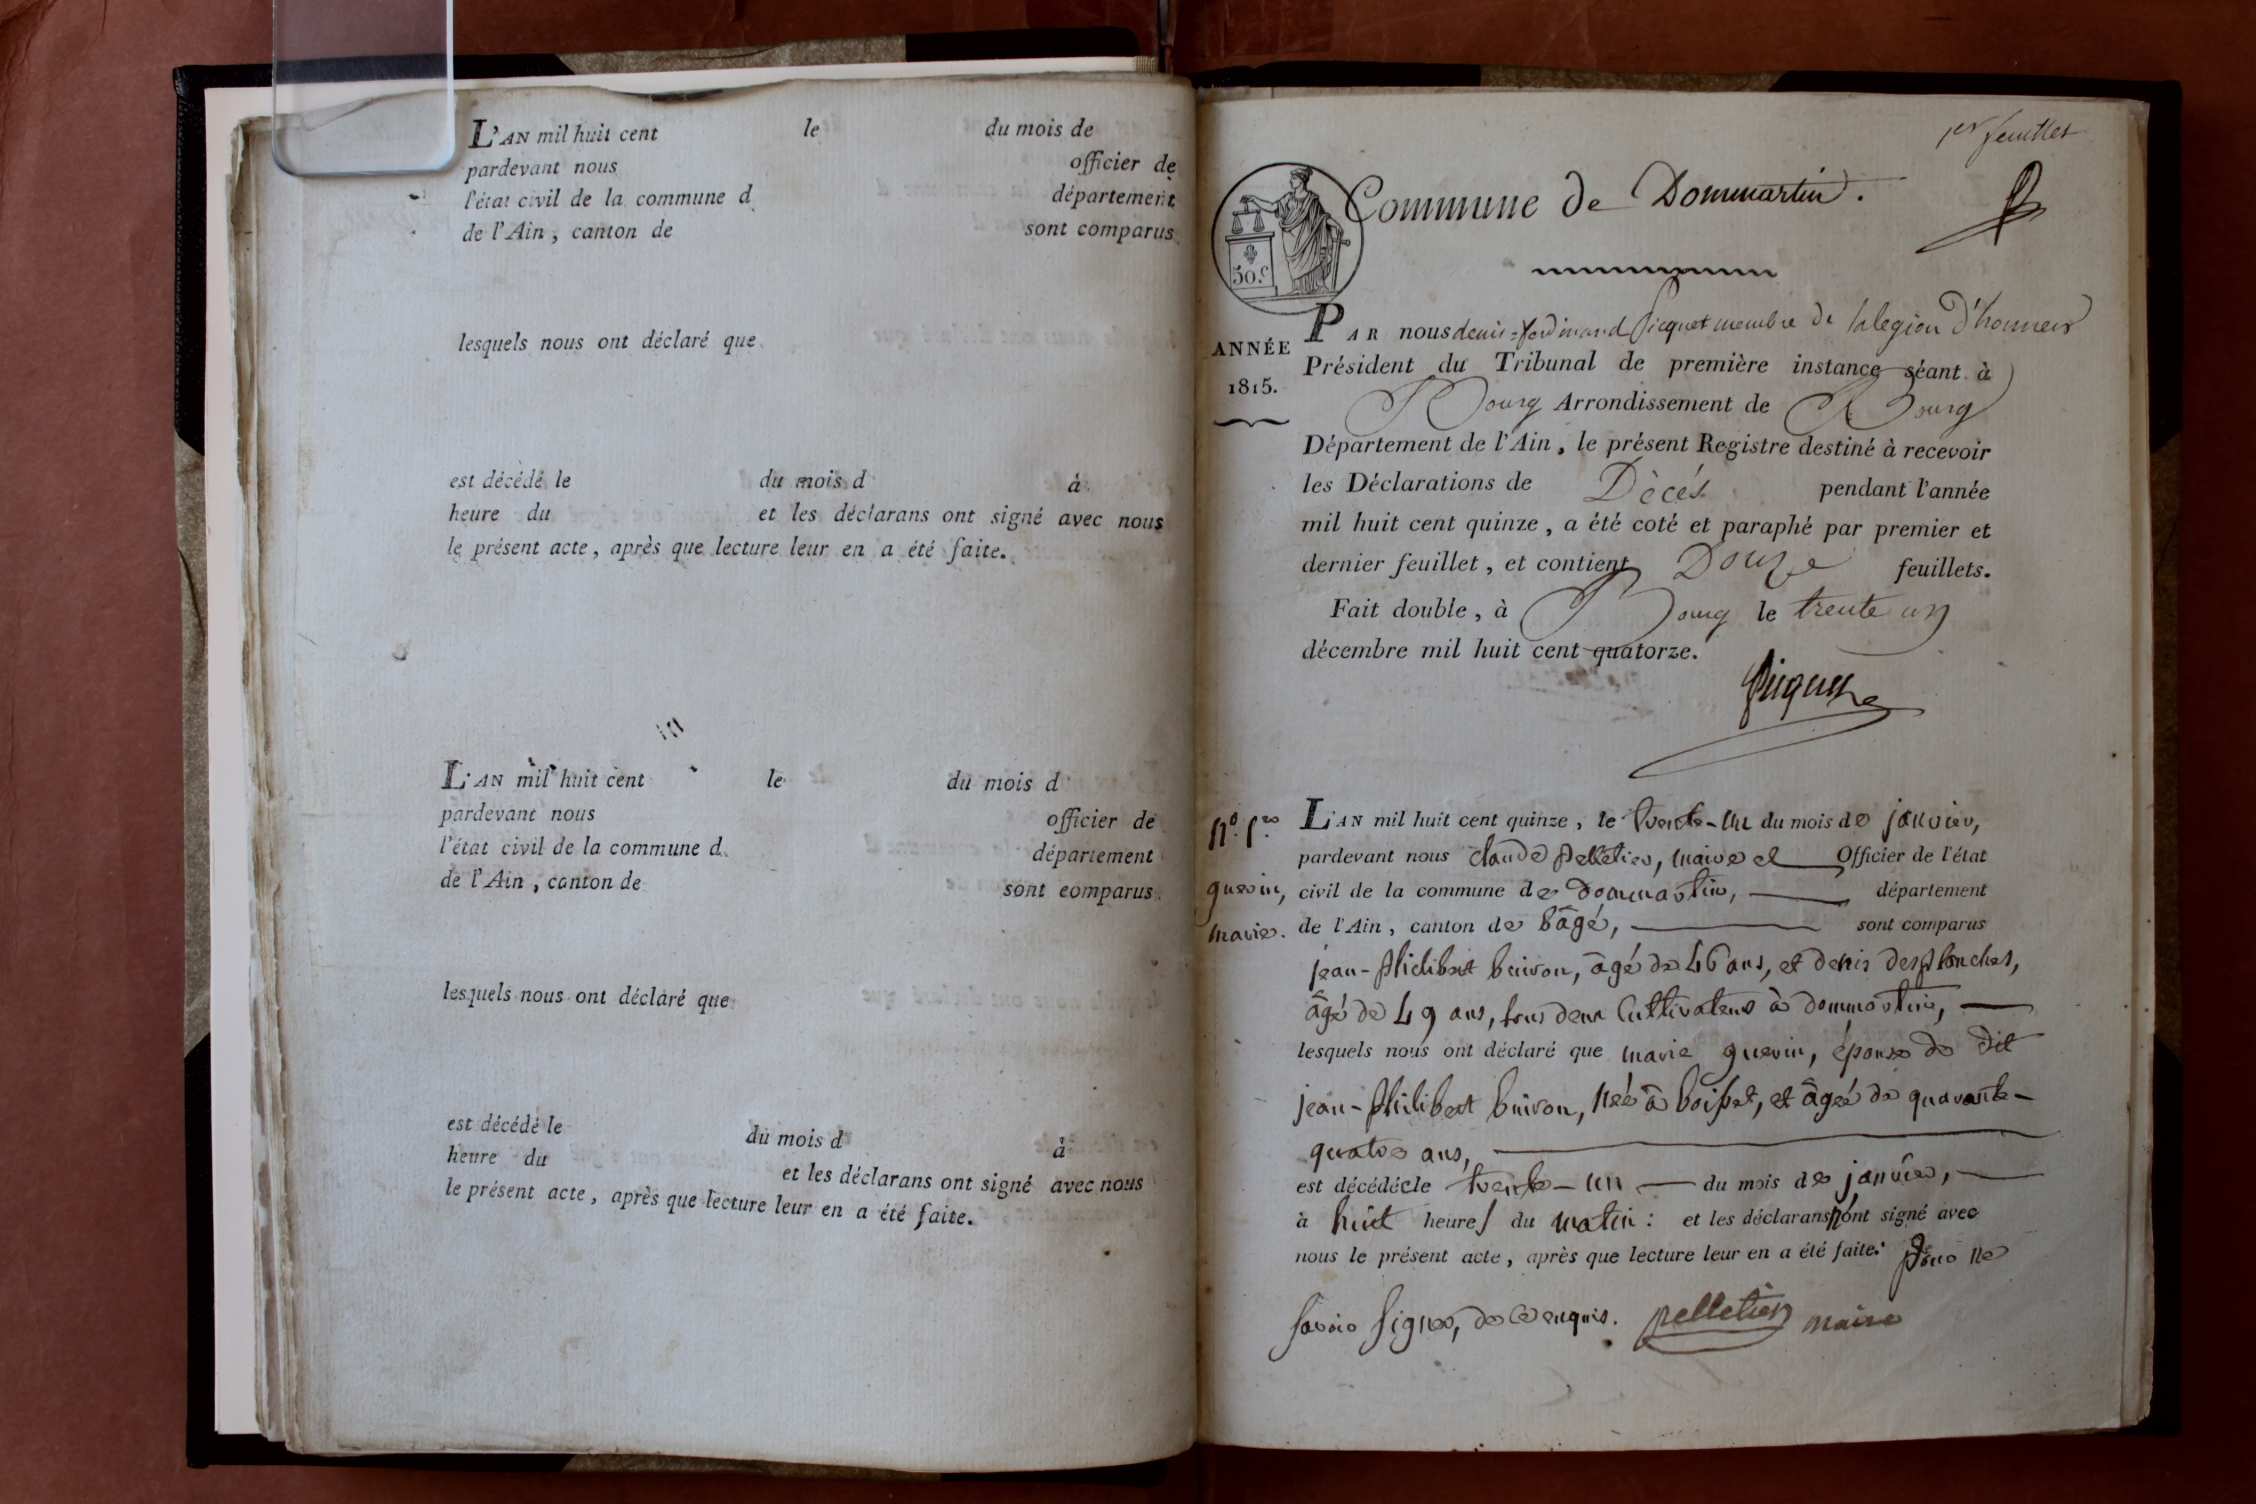 L'AN mil huit cent le du mois de
pardevant nous officier de
l'état civil de la commune d département
de l'Ain, canton de sont comparus
lesquels nous ont déclaré que
est décédé le du mois d à
heure du et les déclarans ont signé avec nous
le présent acte, après que lecture leur en a été faite.
L'AN mil huit cent le du mois d
pardevant nous officier de
l'état civil de la commune d département
de l'Ain, canton de sont comparus
lesquels nous ont déclaré que
est décédé le du mois d à
heure du et les déclarans ont signé avec nous
le présent acte, après que lecture leur en a été faite.
1er feuillet
Commune de Dommartin.
50.c
ANNÉE
1815.
PAR nous denis=ferdinand Picquet membre de la legion d'honneur
Président du Tribunal de première instance séant à
Bourg Arrondissement de Bourg
Département de l'Ain, le présent Registre destiné à recevoir
les Déclarations de Décés pendant l'année
mil huit cent quinze, a été coté et paraphé par premier et
dernier feuillet, et contient Douze feuillets.
Fait double, à Bourg le trente un
décembre mil huit cent quatorze.
Picquet
guerin,
marie.
L'AN mil huit cent quinze, le trente-un du mois de janvier,
pardevant nous claude pelletier, maire et Officier de l'état
civil de la commune de dommartin, département
de l'Ain, canton de bâgé, sont comparus
jean-philibert buiron, âgé de 46 ans, et denis desplanches,
âgé de 49 ans, tous deux Cultivateurs à dommartin,
lesquels nous ont déclaré que marie guerin, épouse de dit
jean-philibert buiron, née à boisset, et âgée de quarante-
quatre ans,
est décédée le trente-un du mois de janvier,
à huit heures du matin: et les déclarans n'ont signé avec
nous le présent acte, après que lecture leur en a été faite. pour ne
savoir signer, de ce enquis. pelletier maire